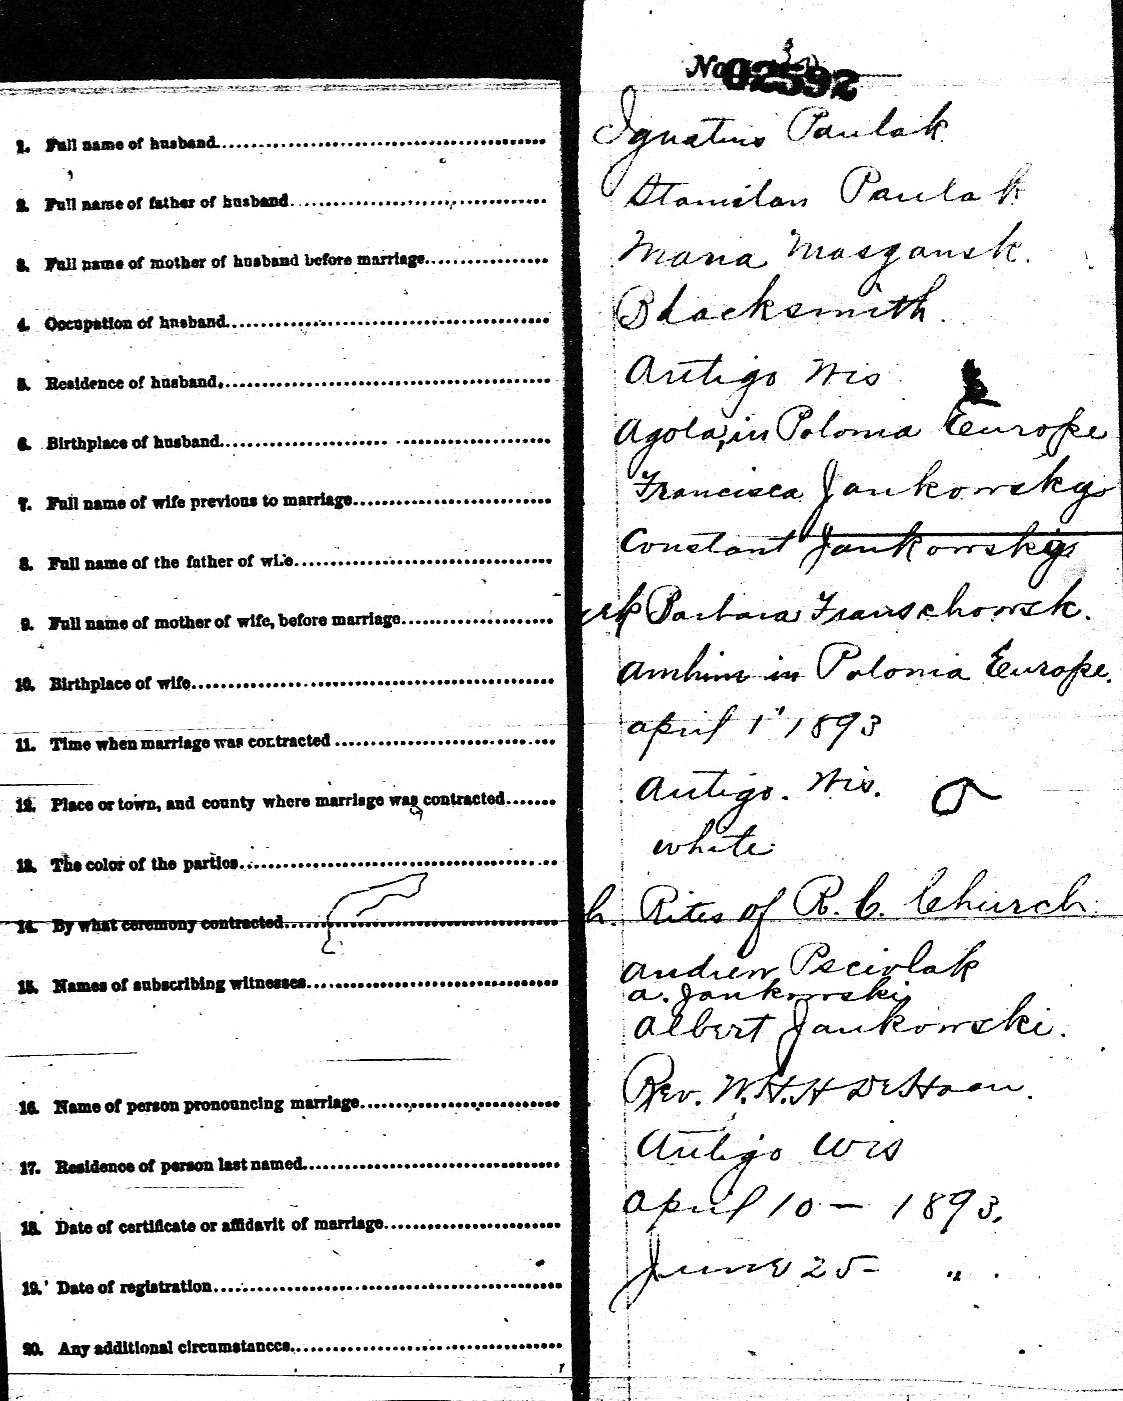 No 02592
1. Full name of husband Ignatius Paulak
2. Full name of father of husband Stanislau Paulak
3. Full name of mother of husband before marriage Maria Masgansk.
4. Occupation of husband Blacksmith.
5. Residence of husband, Antigo Wis
6. Birthplace of husband Agola, in Polonia Europe
7. Full name of wife previous to marriage Francisca Jankowsky
8. Full name of the father of wife Constant Jankowsky
9. Full name of mother of wife, before marriage Barbara Franschowsk.
10. Birthplace of wife in Polonia Europe.
11. Time when marriage was contracted april 1" 1893
12. Place or town, and county where marriage was contracted Antigo. Wis.
13. The color of the parties white
14. By what ceremony contracted Rites of R. C. Church.
15. Names of subscribing witnesses Andrew
a. Jankowski
Albert Jankowski.
16. Name of person pronouncing marriage Rev. W.H.H DeHaan.
17. Residence of person last named Antigo Wis
18. Date of certificate or affidavit of marriage april 10 — 1893.
19. Date of registration June 25 - " .
20. Any additional circumstances